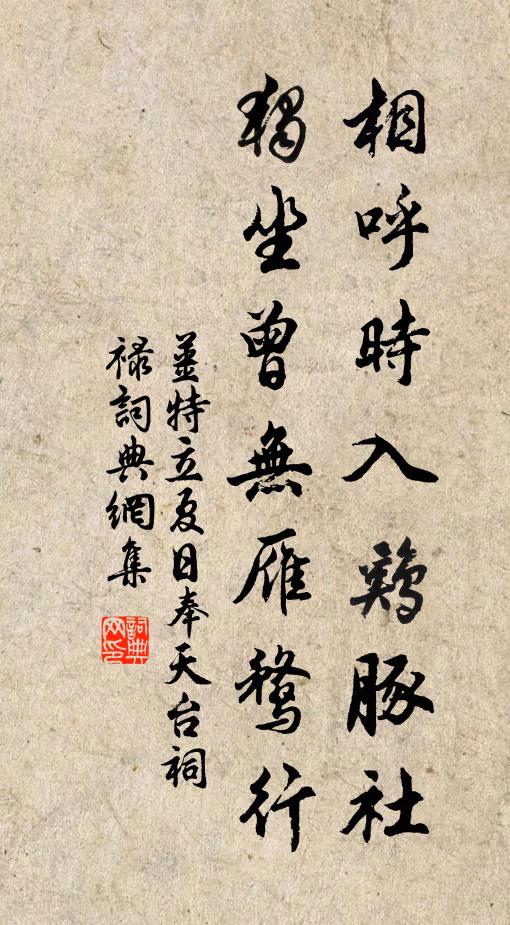 相呼時入鷄豚社
獨坐曾無雁鶩行
薑特立夏日奉天台祠
祿詞典網集
詞典
网印